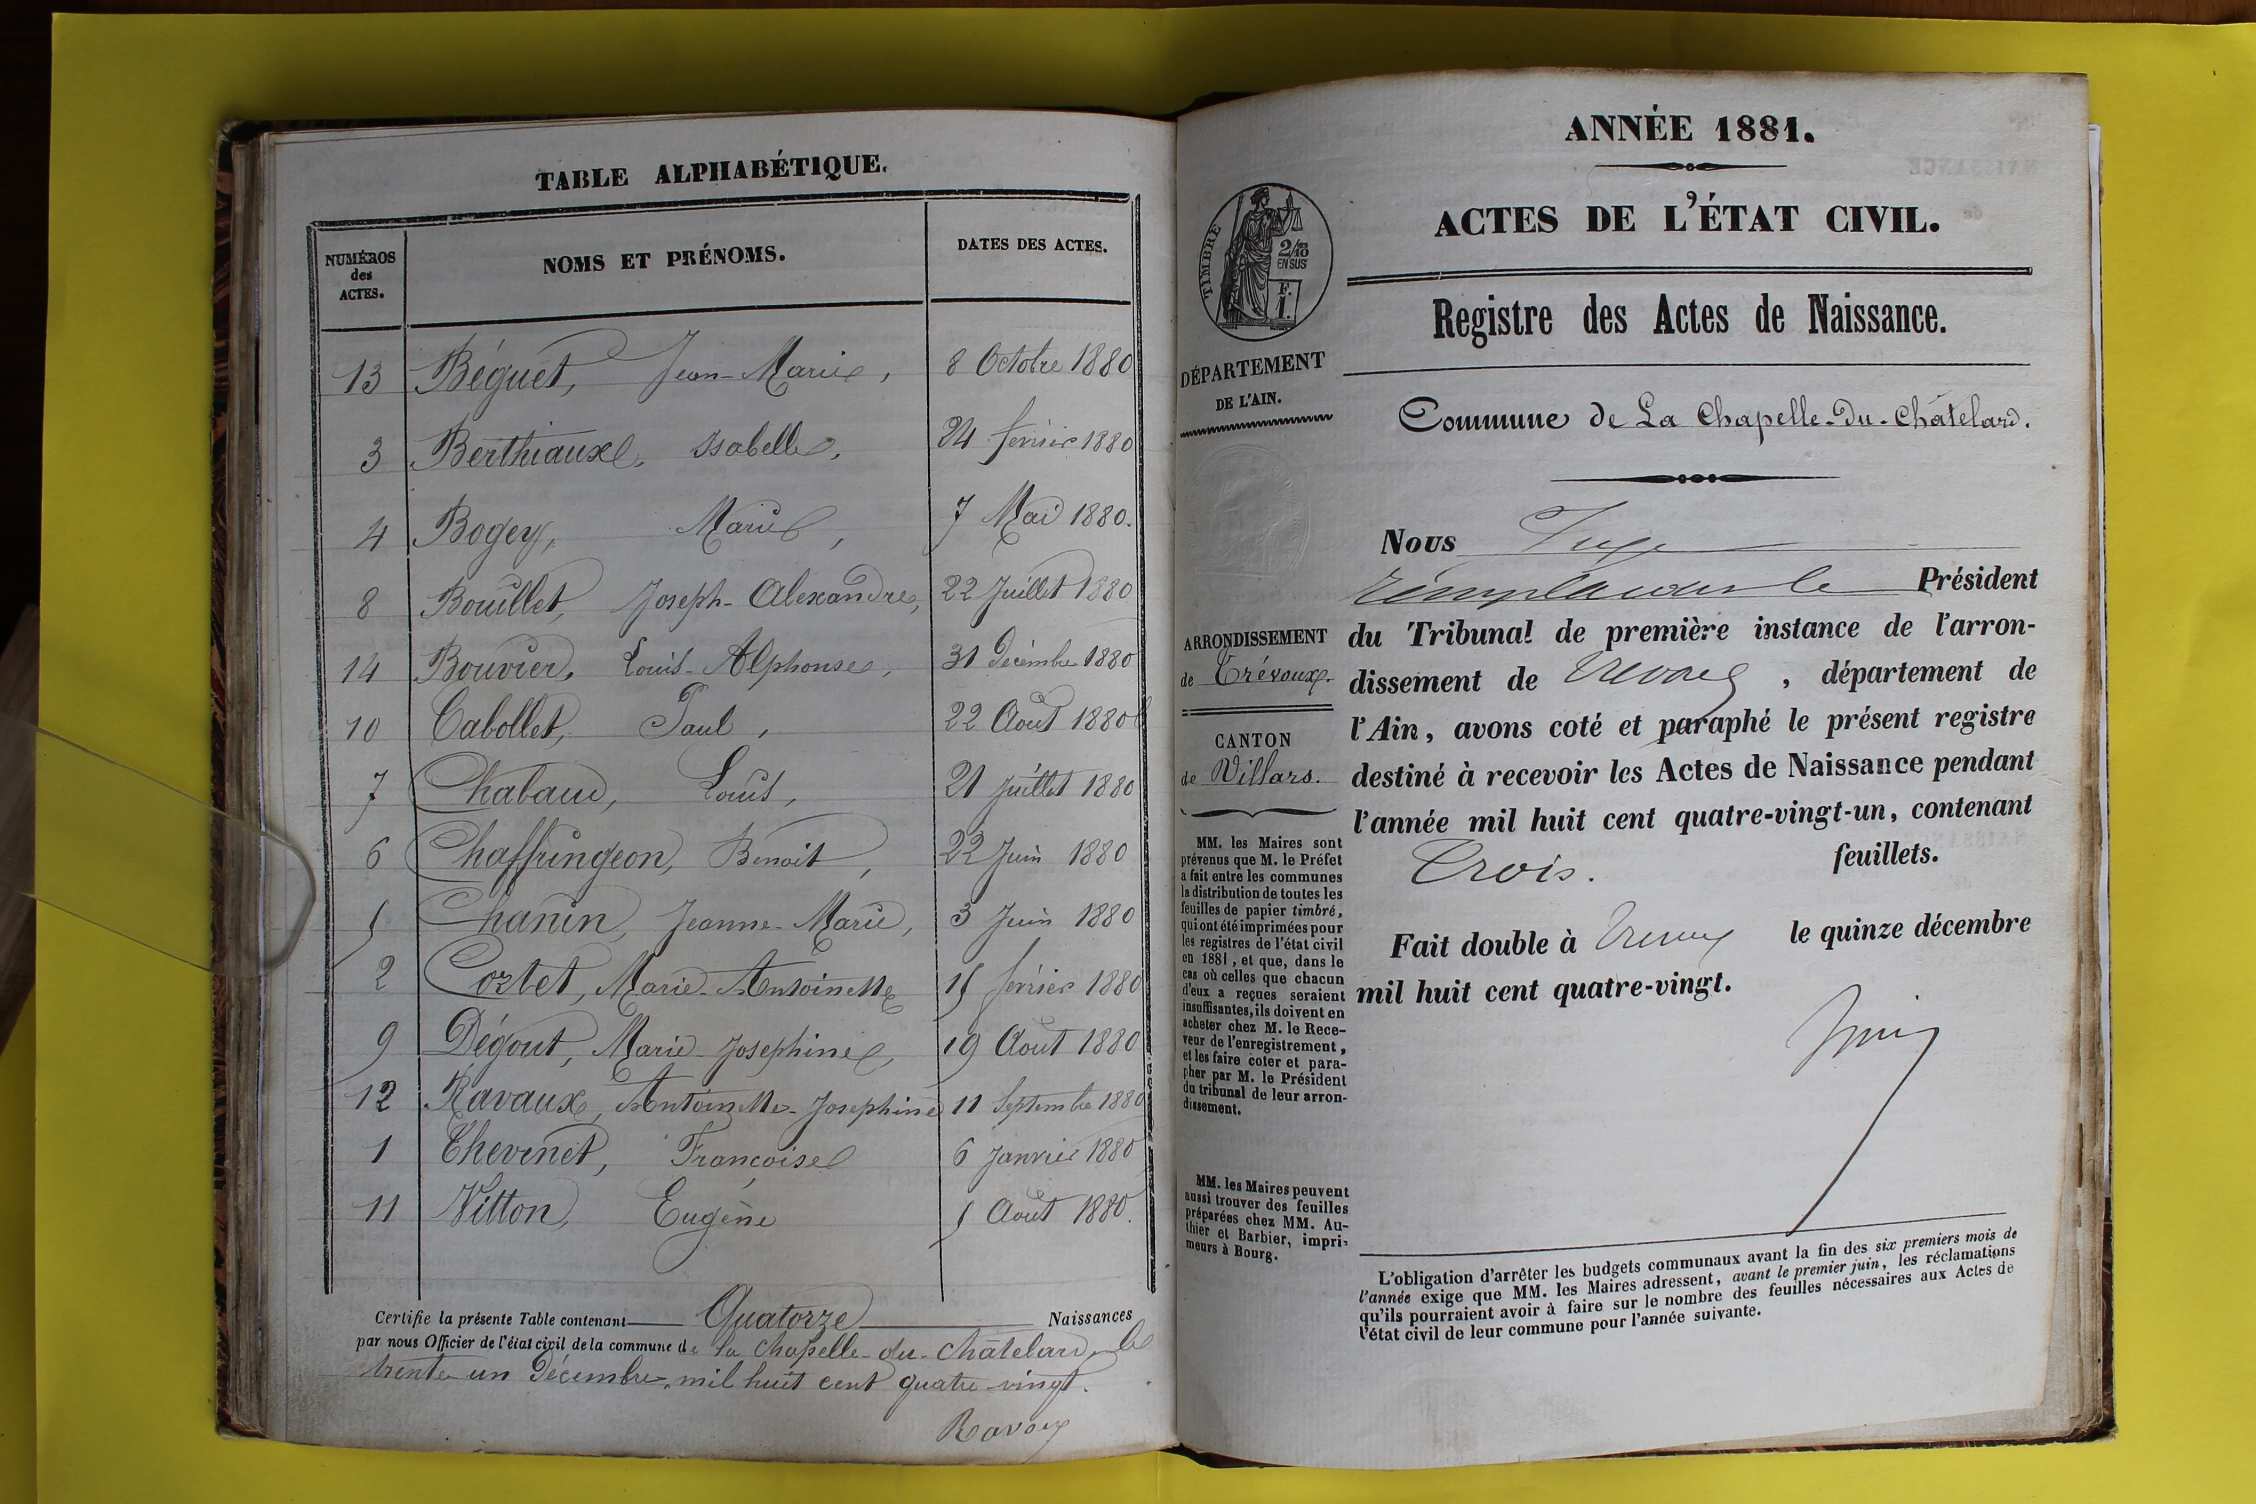 TABLE ALPHABÉTIQUE.
NUMÉROS des ACTES. NOMS ET PRÉNOMS. DATES DES ACTES.
13 Béguet, Jean-Marie, 8 Octobre 1880
3 Berthiaux, Isabelle, 24 février 1880
4 Bogey, Marie, 7 Mai 1880.
8 Bouillet, Joseph-Alexandre, 22 Juillet 1880
14 Bouvier, Louis-Alphonse, 31 Décembre 1880
10 Cabollet, Paul, 22 Août 1880
7 Chabaud, Louis, 21 juillet 1880
6 Chaffringeon, Benoit, 22 Juin 1880
5 Chanin, Jeanne-Marie, 3 Juin 1880
2 Cortet, Marie-Antoinette 15 février 1880
9 Dégout, Marie-Josephine, 19 Août 1880
12 Ravaux, Antoinette-Josephine 11 Septembre 1880
1 Thevenet, Françoise 6 Janvier 1880
11 Vitton, Eugène 5 Août 1880.
Certifie la présente Table contenant Quatorze Naissances
par nous Officier de l'état civil de la commune de La Chapelle-du-Châtelard, le
trente un Décembre, mil huit cent quatre-vingt.
Ravoux
ANNÉE 1881.
ACTES DE L'ÉTAT CIVIL.
TIMBRE
2/10
EN SUS
F.
1.
Registre des Actes de Naissance.
DÉPARTEMENT
DE L'AIN.
Commune de La Chapelle-du-Châtelard.
Nous Juge
remplaçant le Président
ARRONDISSEMENT
de Trévoux.
du Tribunal de première instance de l'arron-
dissement de Trévoux, département de
l'Ain, avons coté et paraphé le présent registre
destiné à recevoir les Actes de Naissance pendant
l'année mil huit cent quatre-vingt-un, contenant
Trois. feuillets.
CANTON
de Villars.
Fait double à Trévoux le quinze décembre
mil huit cent quatre-vingt.
MM. les Maires sont
prévenus que M. le Préfet
a fait entre les communes
la distribution de toutes les
feuilles de papier timbré,
qui ont été imprimées pour
les registres de l'état civil
en 1881, et que, dans le
cas où celles que chacun
d'eux a reçues seraient
insuffisantes, ils doivent en
acheter chez M. le Rece-
veur de l'enregistrement,
et les faire coter et para-
pher par M. le Président
du tribunal de leur arron-
dissement.
MM. les Maires peuvent
aussi trouver des feuilles
préparées chez MM. Au-
thier et Barbier, impri-
meurs à Bourg.
L'obligation d'arrêter les budgets communaux avant la fin des six premiers mois de
l'année exige que MM. les Maires adressent, avant le premier juin, les réclamations
qu'ils pourraient avoir à faire sur le nombre des feuilles nécessaires aux Actes de
l'état civil de leur commune pour l'année suivante.